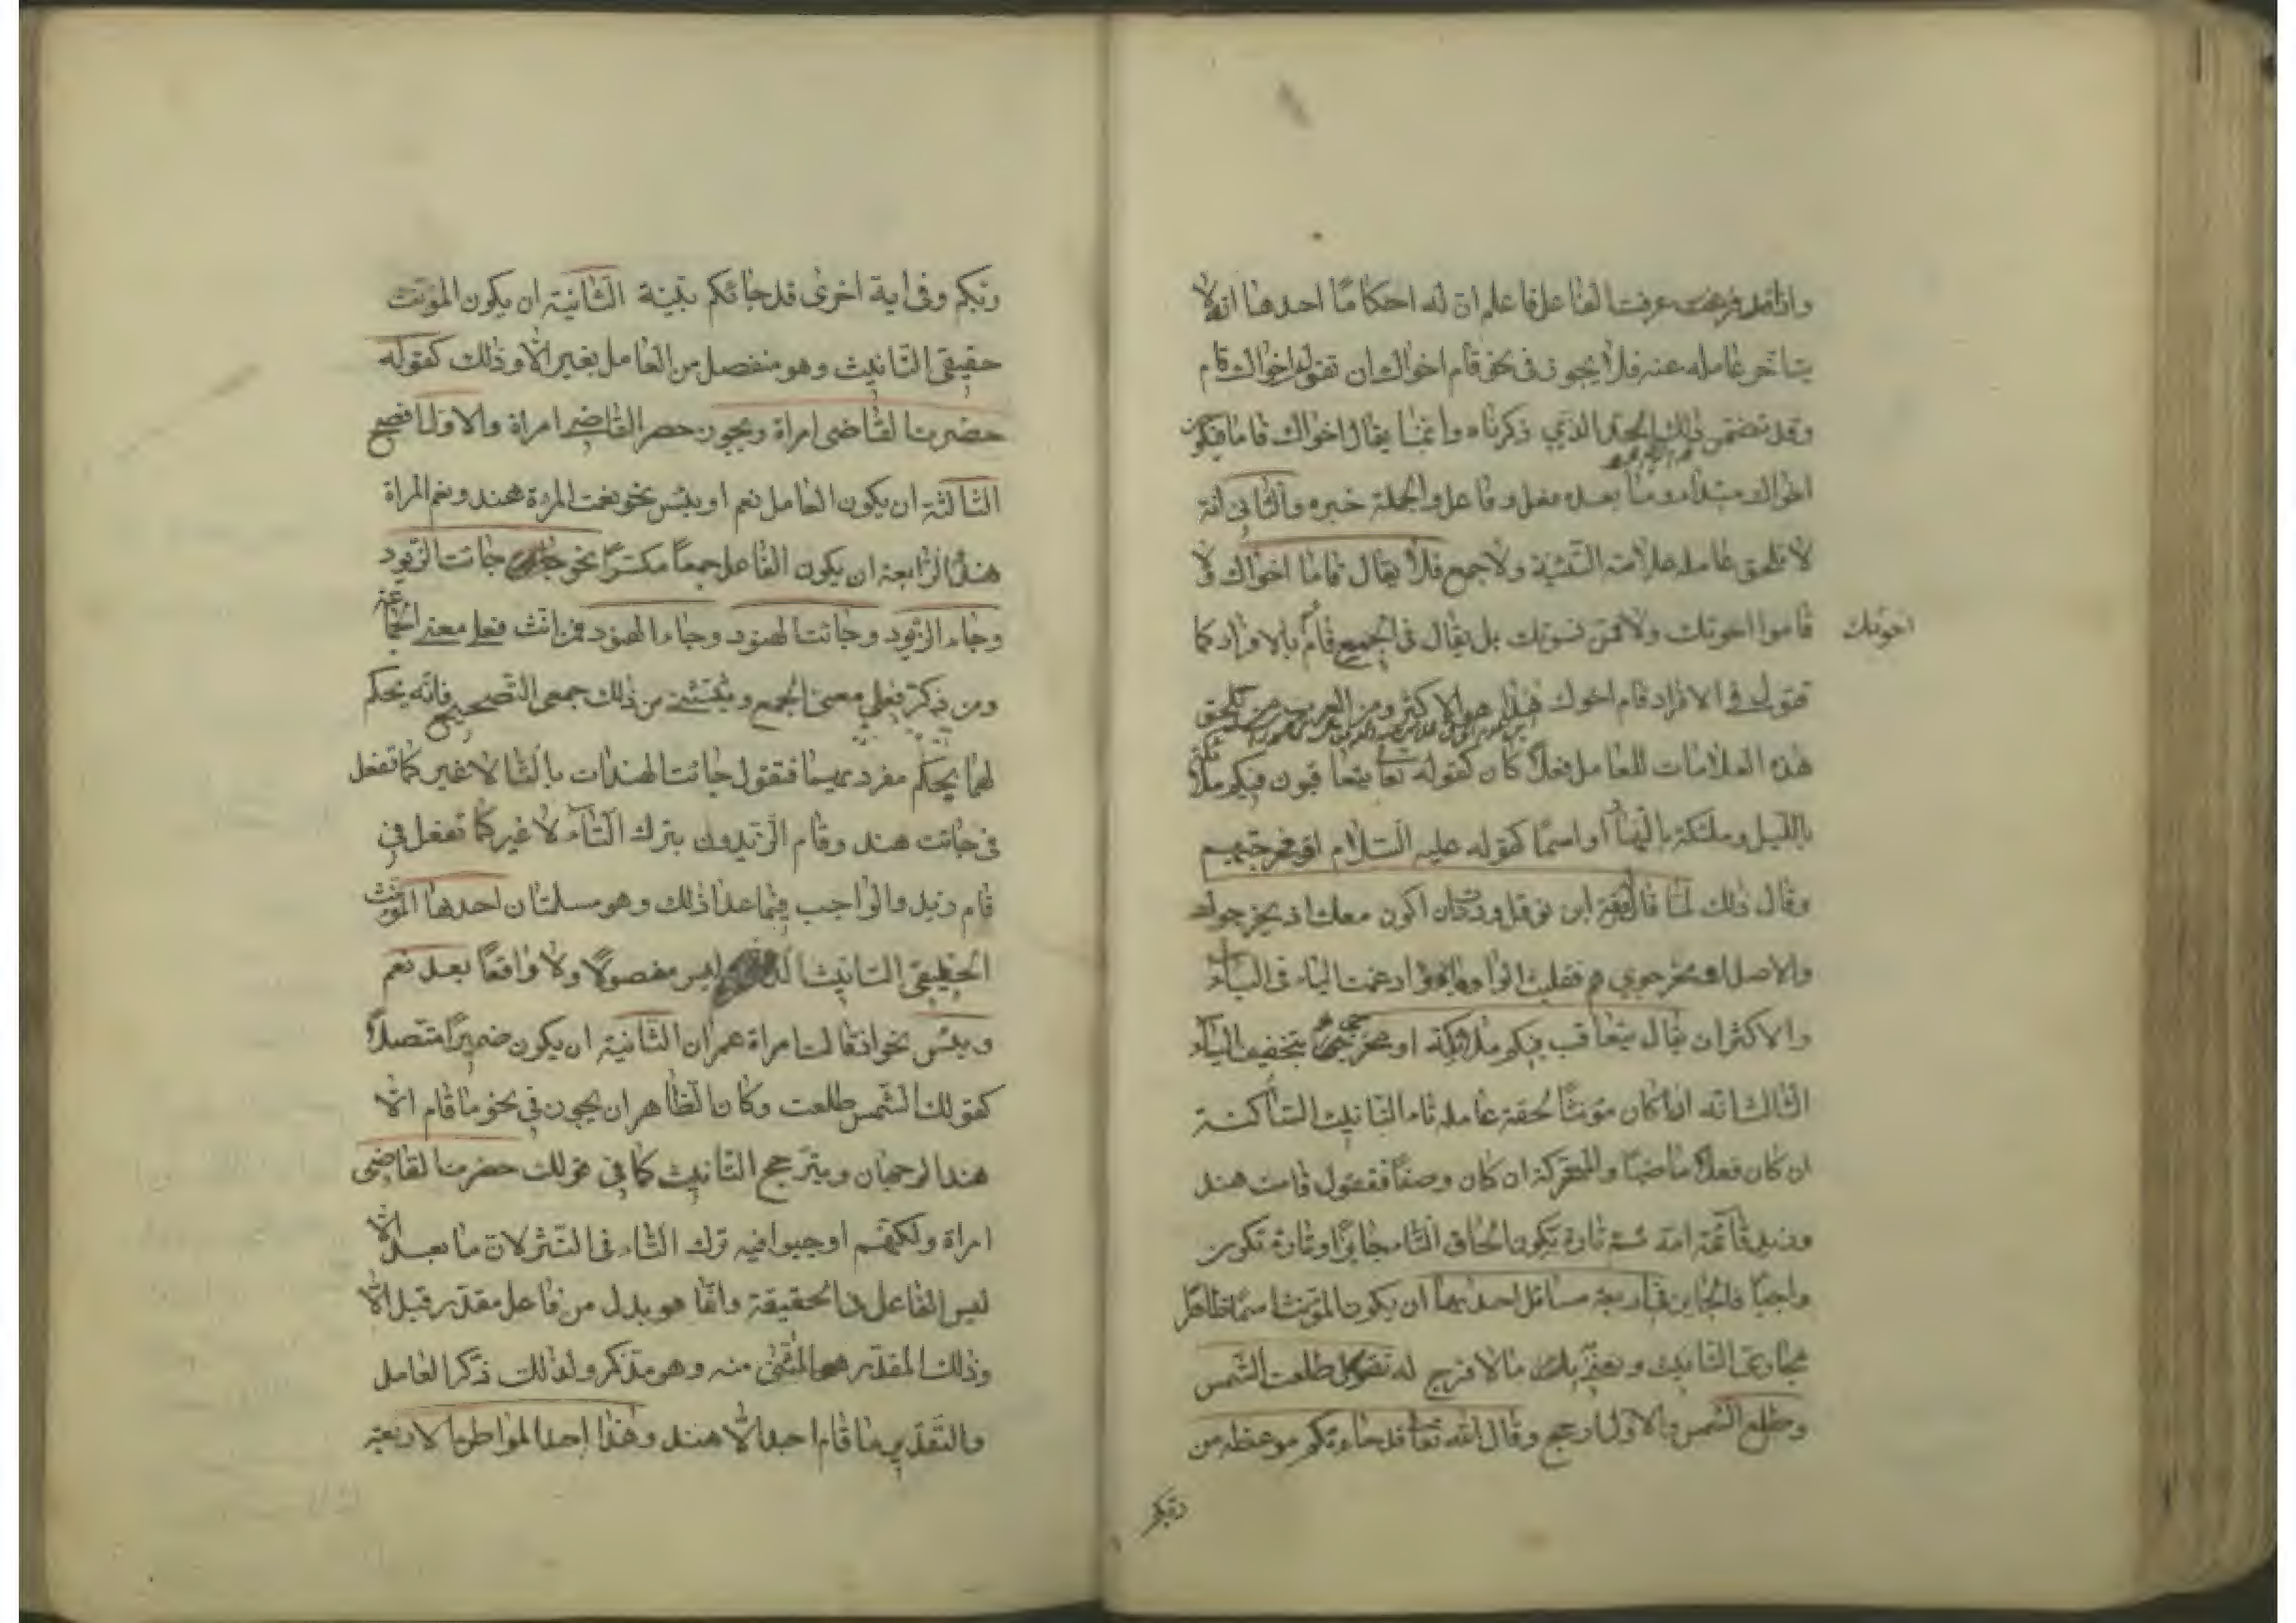 واذا قد عرفت الفاعل فاعلم ان له احكاما احدها ان لا
يتاخر عامله عنه فلا يجوز فى نحو قام اخواك ان تقول اخواك قام
وقد تضمن ذلك الحد الذي ذكرناه وانما يقال اخواك قاما فيكون
اخواك مبتداء وما بعده فعل وفاعل والجملة خبره والثانى انه
لا تلحق عامله علامة التثنية ولا جمع فلا يقال قاما اخواك ولا
قاموا اخوتك ولا قمن نسوتك بل يقال فى الجميع قام بالافراد كما
اخوتك
تقول فى الافراد قام اخوك هذا هو الاكثر ومن العرب من تلحق
هذه العلامات للعامل فعلاً كان كقوله تعا يتعاقبون فيكم ملائكة
بالليل وملئكة بالنهار او اسمًا كقوله عليه السلام او مخرجيهم
وقال ذلك لما قال ورقة ابن نوفل وددت ان اكون معك اذ يخرجوك
والاصل او مخرجوي هم فقلبت الواو ياء وادغمت الياء فى الياء
والاكثر ان يقال يتعاقب فيكم ملائكة او مخرجى هم بتخفيف الياء
الثالث انه اذا كان مؤنثًا لحقة عامله تاء التانيث الساكنة
ان كان فعلاً ماضيًا والمتحركة ان كان وصفًا فتقول قامت هند
وزيد قائمة امه ثم تارة يكون الحاق التاء جايزًا وتارة تكون
واجبًا فالجايز فى اربعة مسائل احديها ان يكون المؤنث اسمًا ظاهرًا
مجازى التانيث ونعنى به ما لا فرج له تقول طلعت الشمس
وطلع الشمس والاول ارجح وقال الله تعا قد جاءتكم موعظة من
ربكم
ربكم وفى اية اخرى قد جائكم بينة الثانية ان يكون المؤنث
حقيقى التانيث وهو منفصل من العامل بغير الا وذلك كقوله
حضرت القاضى امراة ويجوز حضر القاضى امراة والاول افصح
الثالثة ان يكون العامل نعم او بئس نحو نعمت المرءة هند ونعم المراة
هند الرابعة ان يكون الفاعل جمعًا مكسرًا نحو جائت الزيود
وجاء الزيود وجائت الهنود وجاء الهنود فمن انث فعلى معنى الجماعة
ومن ذكر فعلى معنى الجمع ويستثنى من ذلك جمعى التصحيح فانه يحكم
لهما بحكم مفرديهما فتقول جائت الهندات بالتا لا غير كما تفعل
فى جائت هند وقام الزيدون بترك التاء لا غير كما تفعل فى
قام زيد والواجب فيما عدا ذلك وهو مسلتان احدها المؤنث
الحقيقى التانيث الذى ليس مفصولًا ولا واقعًا بعد نعم
وبئس نحو اذ قالت امراة عمران الثانية ان يكون ضميرًا متصلًا
كقولك الشمس طلعت وكان الظاهر ان يجوز فى نحو ما قام الا
هند الوجهان ويترجح التانيث كما فى قولك حضرت القاضى
امراة ولكنهم اوجبوا فيه ترك التاء فى النثر لان ما بعد الا
ليس الفاعل فى الحقيقة وانما هو بدل من فاعل مقدر قبل الا
وذلك المقدر هو المستثنى منه وهو مذكر ولذلك ذكر العامل
والتقدير ما قام احد الا هند وهذا احد المواطن الاربعة